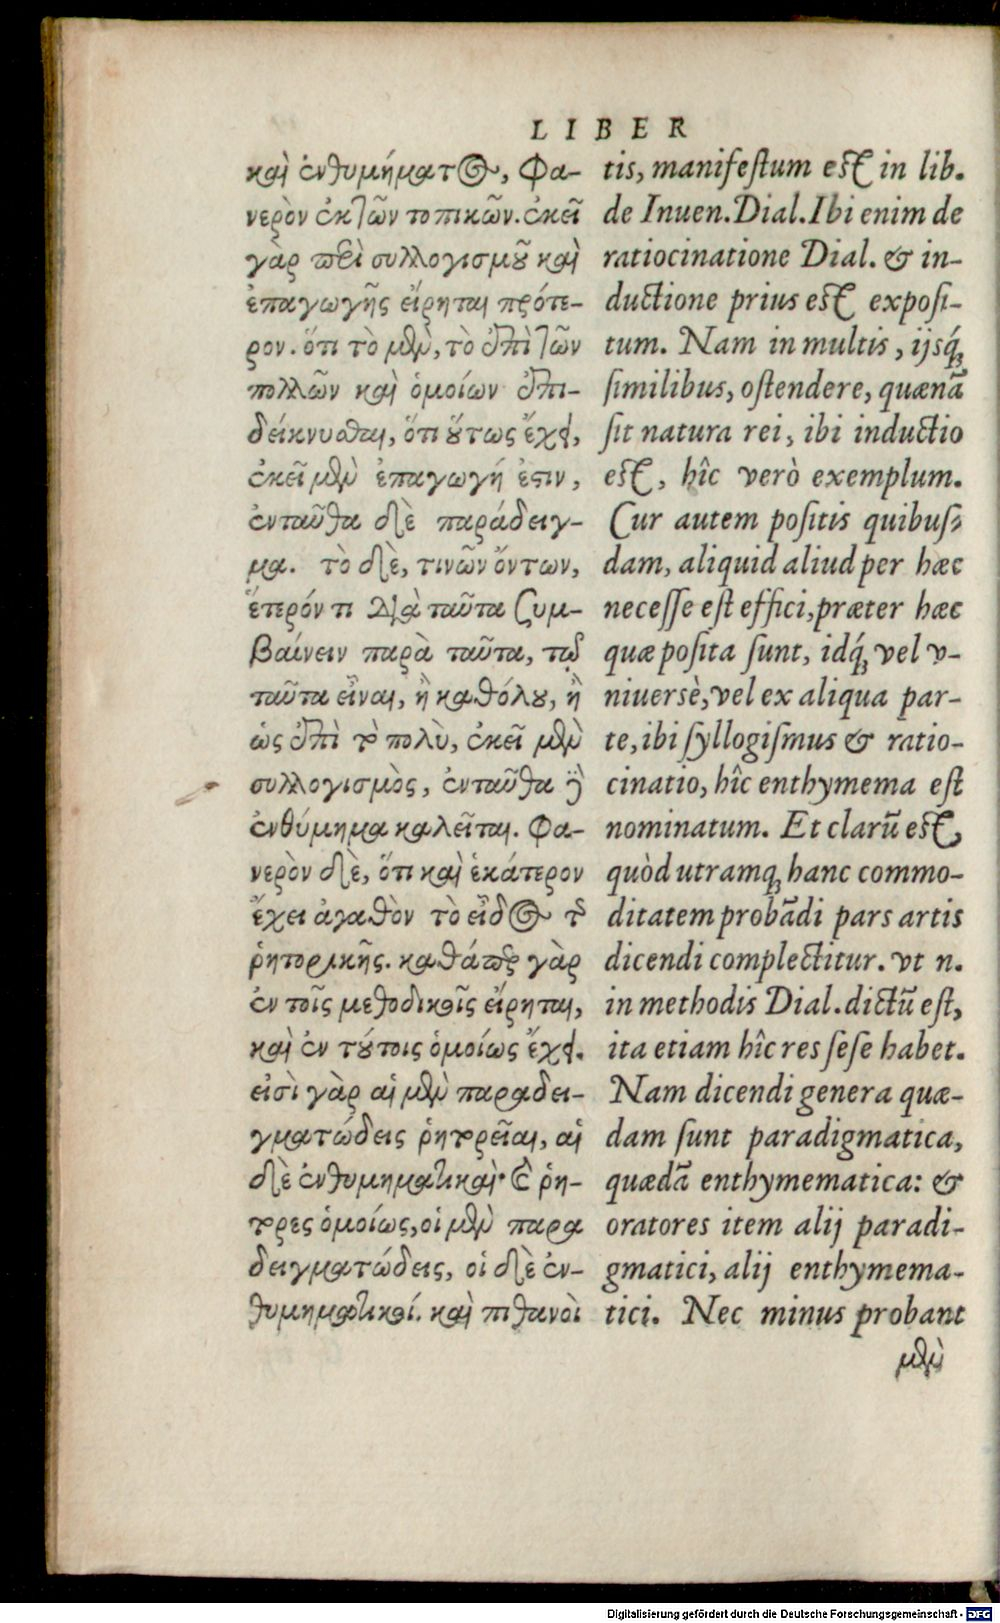 LIBER
καὶ ἐνθυμήματος, Φα-
νερὸν ἐκ τῶν τοπικῶν. ἐκεῖ
γὰρ περὶ συλλογισμοῦ καὶ
ἐπαγωγῆς εἴρηται πρότε-
ρον. ὅτι τὸ μὲν, τὸ ἐπὶ τῶν
πολλῶν καὶ ὁμοίων ἐπι-
δείκνυσθαι, ὅτι οὕτως ἔχει,
ἐκεῖ μὲν ἐπαγωγή ἐστιν,
ἐνταῦθα δὲ παράδειγ-
μα. τὸ δὲ, τινῶν ὄντων,
ἕτερόν τι διὰ ταῦτα συμ-
βαίνειν παρὰ ταῦτα, τῷ
ταῦτα εἶναι, ἢ καθόλου, ἢ
ὡς ἐπὶ τὸ πολὺ, ἐκεῖ μὲν
συλλογισμὸς, ἐνταῦθα δὲ
ἐνθύμημα καλεῖται. Φα-
νερὸν δὲ, ὅτι καὶ ἑκάτερον
ἔχει ἀγαθὸν τὸ εἶδος τῆς
ῥητορικῆς. καθάπερ γὰρ
ἐν τοῖς μεθοδικοῖς εἴρηται,
καὶ ἐν τούτοις ὁμοίως ἔχει.
εἰσὶ γὰρ αἱ μὲν παραδει-
γματώδεις ῥητορεῖαι, αἱ
δὲ ἐνθυμηματικαὶ· καὶ ῥή-
τορες ὁμοίως, οἱ μὲν παρα
δειγματώδεις, οἱ δὲ ἐν-
θυμηματικοί. καὶ πιθανοὶ
tis, manifestum est in lib.
de Inuen. Dial. Ibi enim de
ratiocinatione Dial. & in-
ductione prius est exposi-
tum. Nam in multis, ijsq́;
similibus, ostendere, quænã
sit natura rei, ibi inductio
est, hîc verò exemplum.
Cur autem positis quibus-
dam, aliquid aliud per hæc
necesse est effici, præter hæc
quæ posita sunt, idq́; vel v-
niuersè, vel ex aliqua par-
te, ibi syllogismus & ratio-
cinatio, hîc enthymema est
nominatum. Et clarũ est,
quòd utramq; hanc commo-
ditatem probãdi pars artis
dicendi complectitur. vt n.
in methodis Dial. dictũ est,
ita etiam hîc res sese habet.
Nam dicendi genera quæ-
dam sunt paradigmatica,
quædã enthymematica: &
oratores item alij paradi-
gmatici, alij enthymema-
tici. Nec minus probant
μὲν
Digitalisierung gefördert durch die Deutsche Forschungsgemeinschaft - DFG